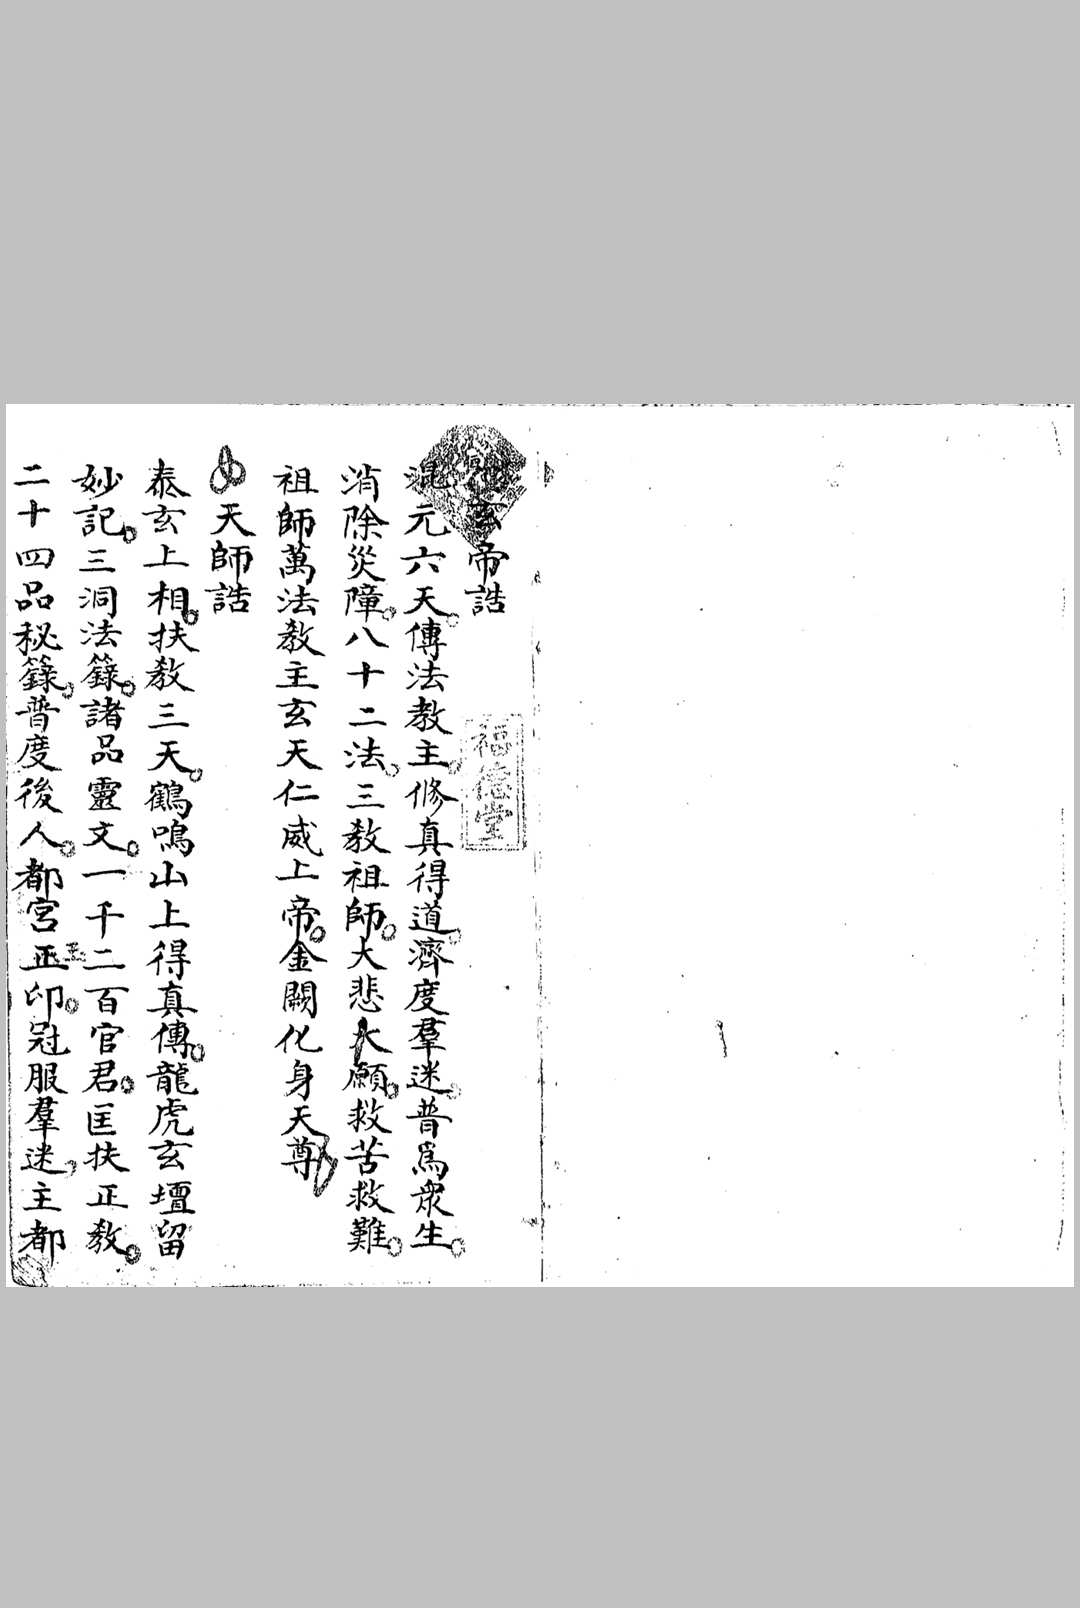 玄帝誥
福德堂
混元六天。傳法教主。修真得道。濟度羣迷。普為衆生。
消除災障。八十二法。三教祖師。大悲大願。救苦救難。
祖師萬法教主玄天仁威上帝。金闕化身天尊
天師誥
泰玄上相。扶教三天。鶴鳴山上得真傳。龍虎玄壇留
妙記。三洞法籙。諸品靈文。一千二百官君。匡扶正教。
二十四品秘籙。普度後人。都宮正玉印。冠服羣迷。主都